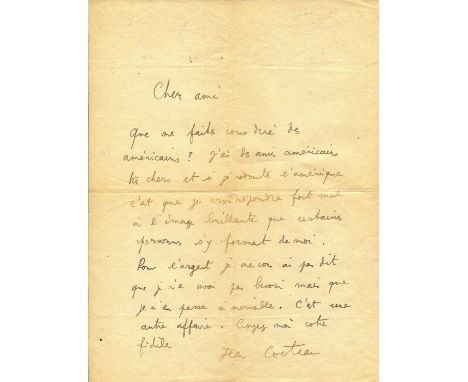 Cher ami
Que ne faites vous dire des
américains? J'ai des amis américains
très chers et si je redoute l'amérique
c'est que je crois répondre fort mal
à l'image brillante que certaines
personnes s'y forment de moi.
Pour l'argent je ne vous ai pas dit
que je n'en avais pas besoin mais que
je m'en passe à merveille. C'est une
autre affaire. Croyez moi votre
fidèle
Jean Cocteau